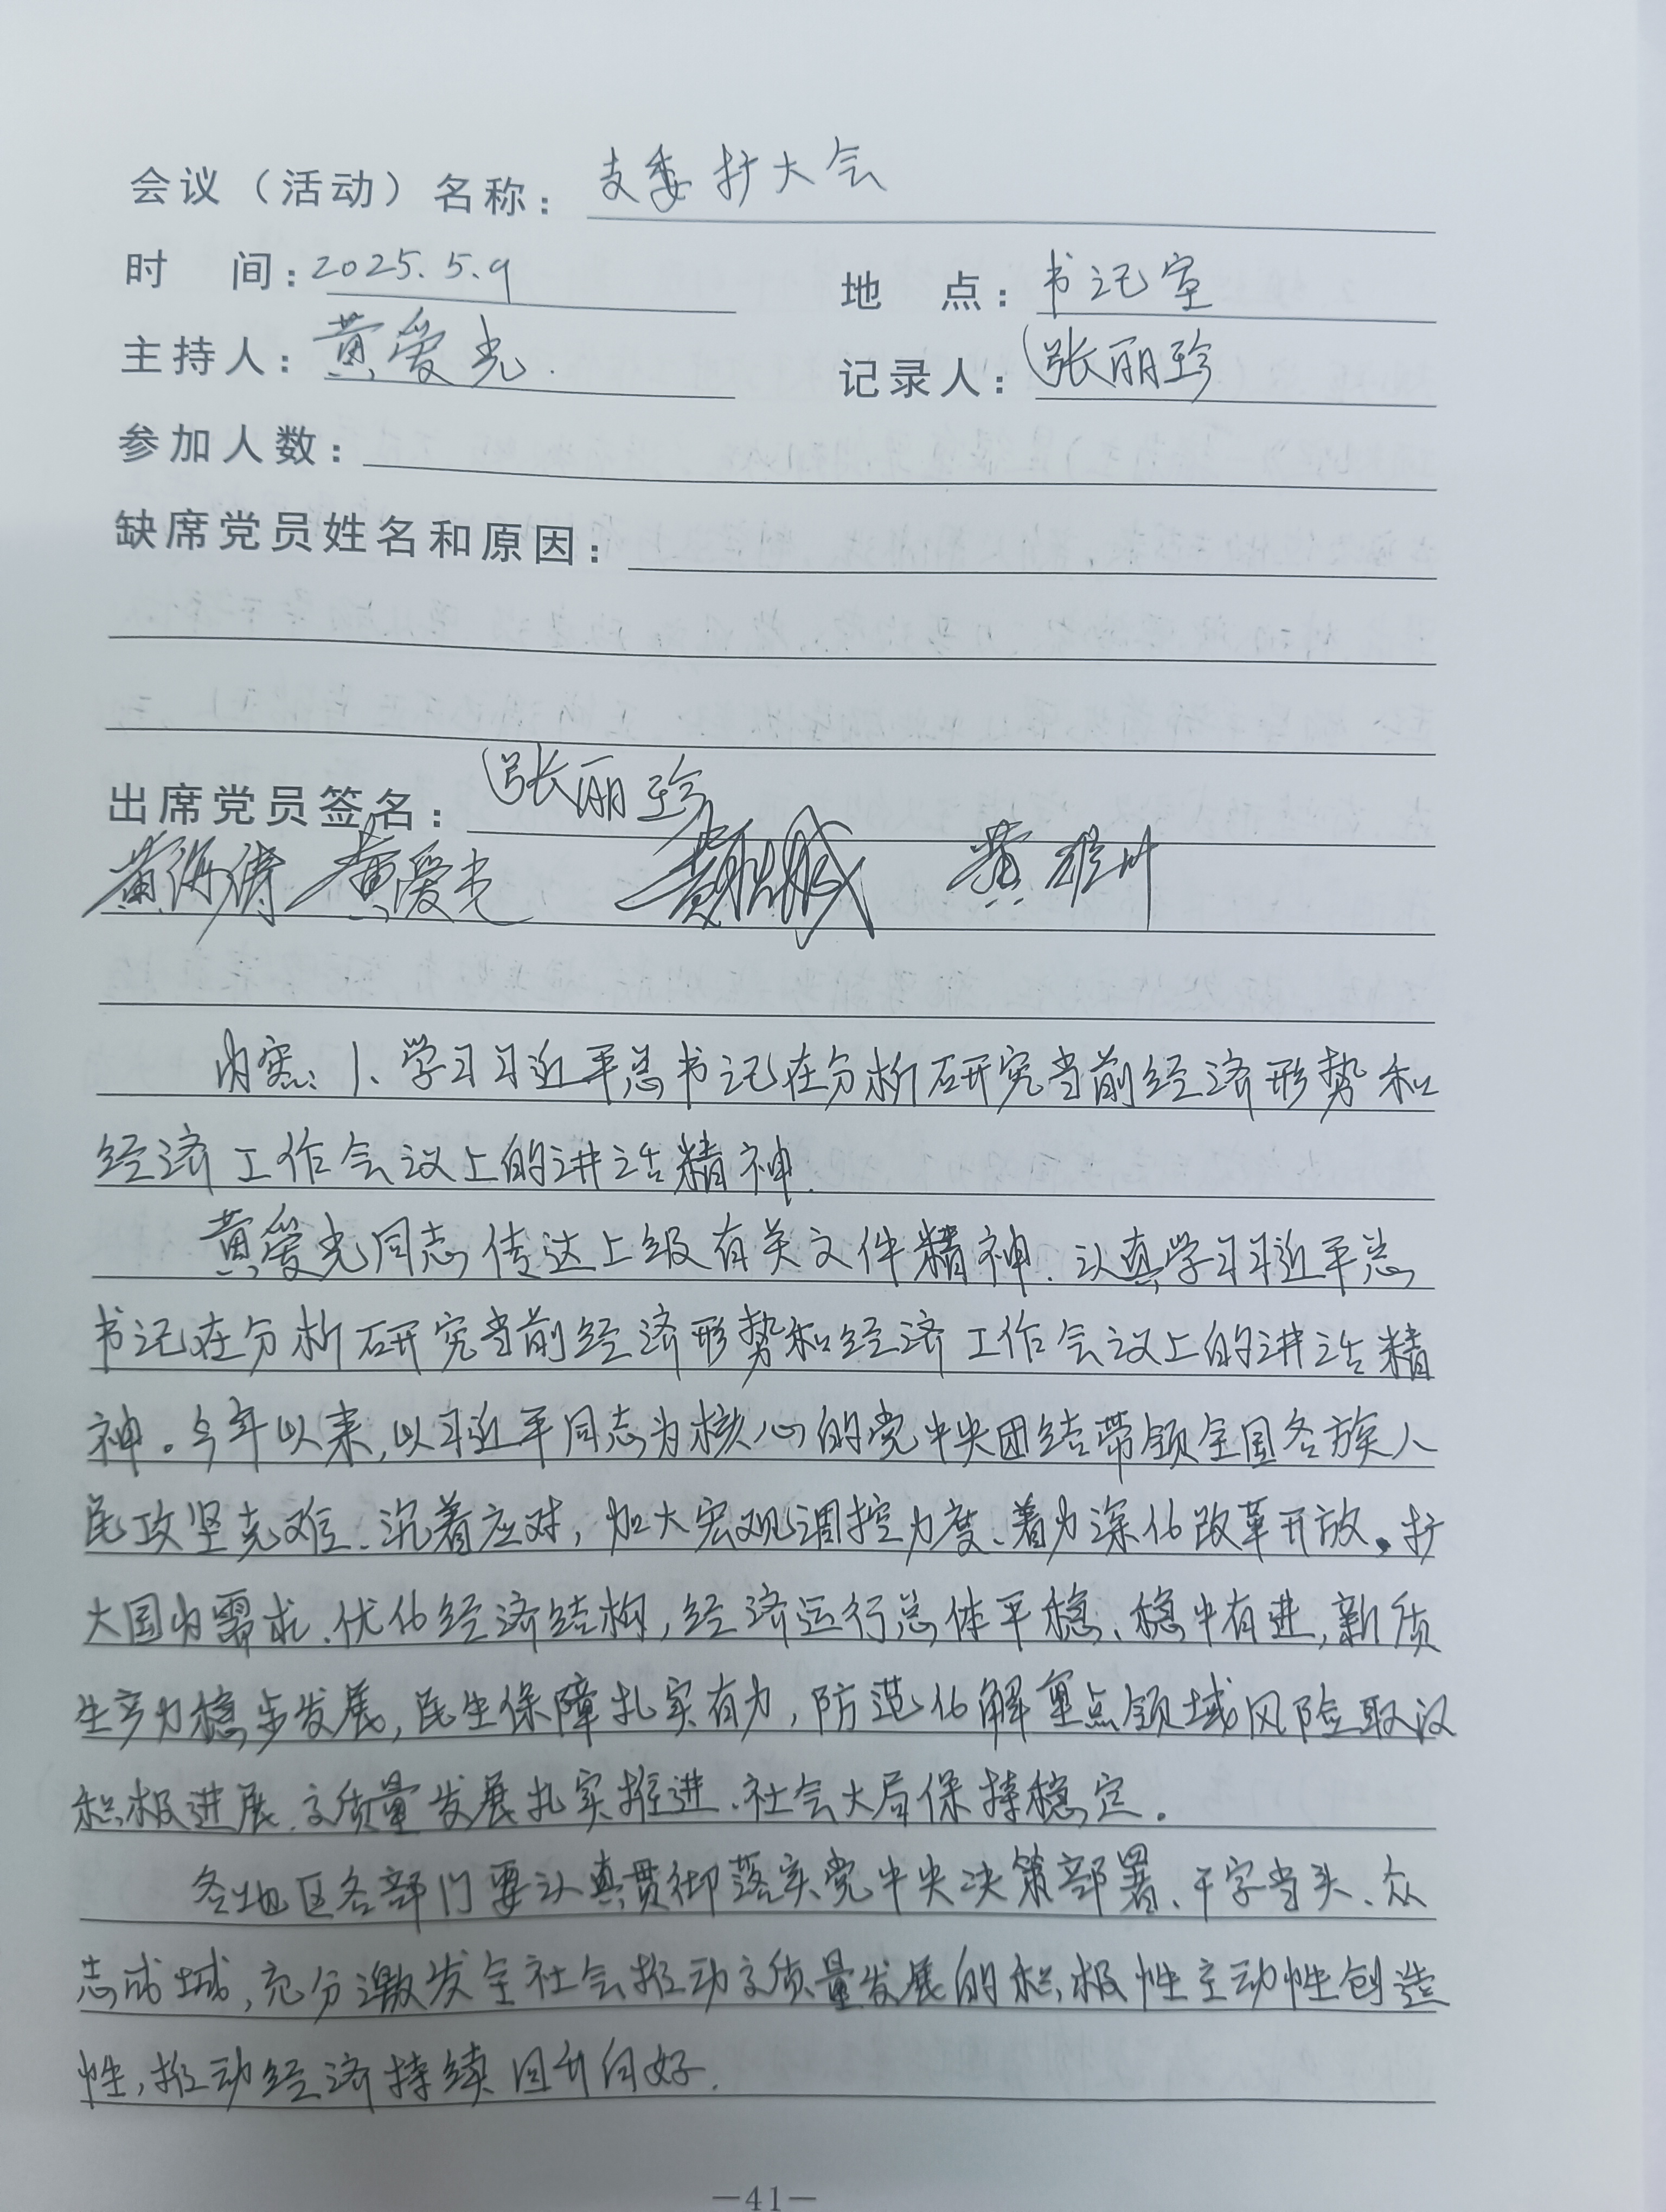 会议（活动）名称：支委扩大会
时　间：2025.5.9　地　点：书记室
主持人：黄爱光.　记录人：张丽珍
参加人数：
缺席党员姓名和原因：
出席党员签名：张丽珍
黄海涛 黄爱光 黄 黄雄州
内容：1、学习习近平总书记在分析研究当前经济形势和
经济工作会议上的讲话精神.
黄爱光同志传达上级有关文件精神.认真学习习近平总
书记在分析研究当前经济形势和经济工作会议上的讲话精
神。今年以来,以习近平同志为核心的党中央团结带领全国各族人
民攻坚克难、沉着应对,加大宏观调控力度、着力深化改革开放、扩
大国内需求、优化经济结构,经济运行总体平稳、稳中有进,新质
生产力稳步发展,民生保障扎实有力,防范化解重点领域风险取
积极进展.高质量发展扎实推进、社会大局保持稳定。
各地区各部门要认真贯彻落实党中央决策部署、干字当头、众
志成城,充分激发全社会推动高质量发展的积极性主动性创造
性,推动经济持续回升向好.
—41—